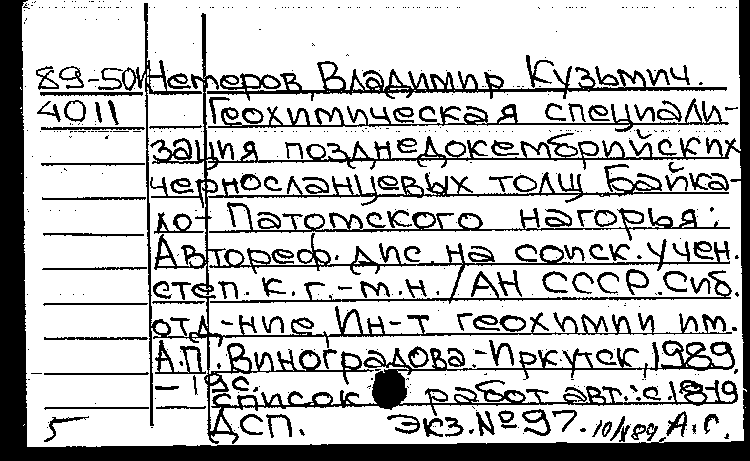 89-50к Нетеров, Владимир Кузьмич.
4011 Геохимическая специали-
зация позднедокембрийских
черносланцевых толщ Байка-
ло-Патомского нагорья:
Автореф. дис. на соиск. учен.
степ. к.г.-м.н./АН СССР. Сиб.
отд-ние, Ин-т геохимии им.
А.П. Виноградова.-Иркутск, 1989.
- 19с.
список работ авт.: с.18-19
5 ДСП. Экз.№97. 10/X89 А.Г.